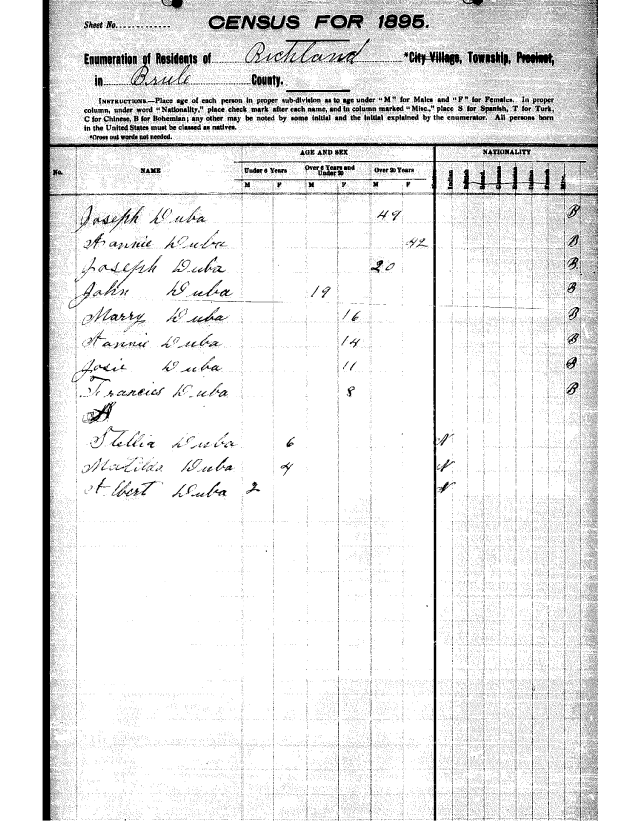 Sheet No.
CENSUS FOR 1895.
Enumeration of Residents of Richland *City Village, Township, Precinct,
in Brule County.
INSTRUCTIONS.—Place age of each person in proper sub-division as to age under "M" for Males and "F" for Females. In proper
column, under word "Nationality," place check mark after each name, and in column marked "Misc.," place S for Spanish, T for Turk,
C for Chinese, B for Bohemian; any other may be noted by some initial and the initial explained by the enumerator. All persons born
in the United States must be classed as natives.
*Cross out words not needed.
No. NAME AGE AND SEX NATIONALITY
Under 6 Years Over 6 Years and Under 20 Over 20 Years
M F M F M F
Joseph Duba 49 B
Annie Duba 42 B
Joseph Duba 20 B
John Duba 19 B
Marry Duba 16 B
Annie Duba 14 B
Josie Duba 11 B
Francies Duba 8 B
Stellia Duba 6 N
Matilda Duba 4 N
Albert Duba 2 N